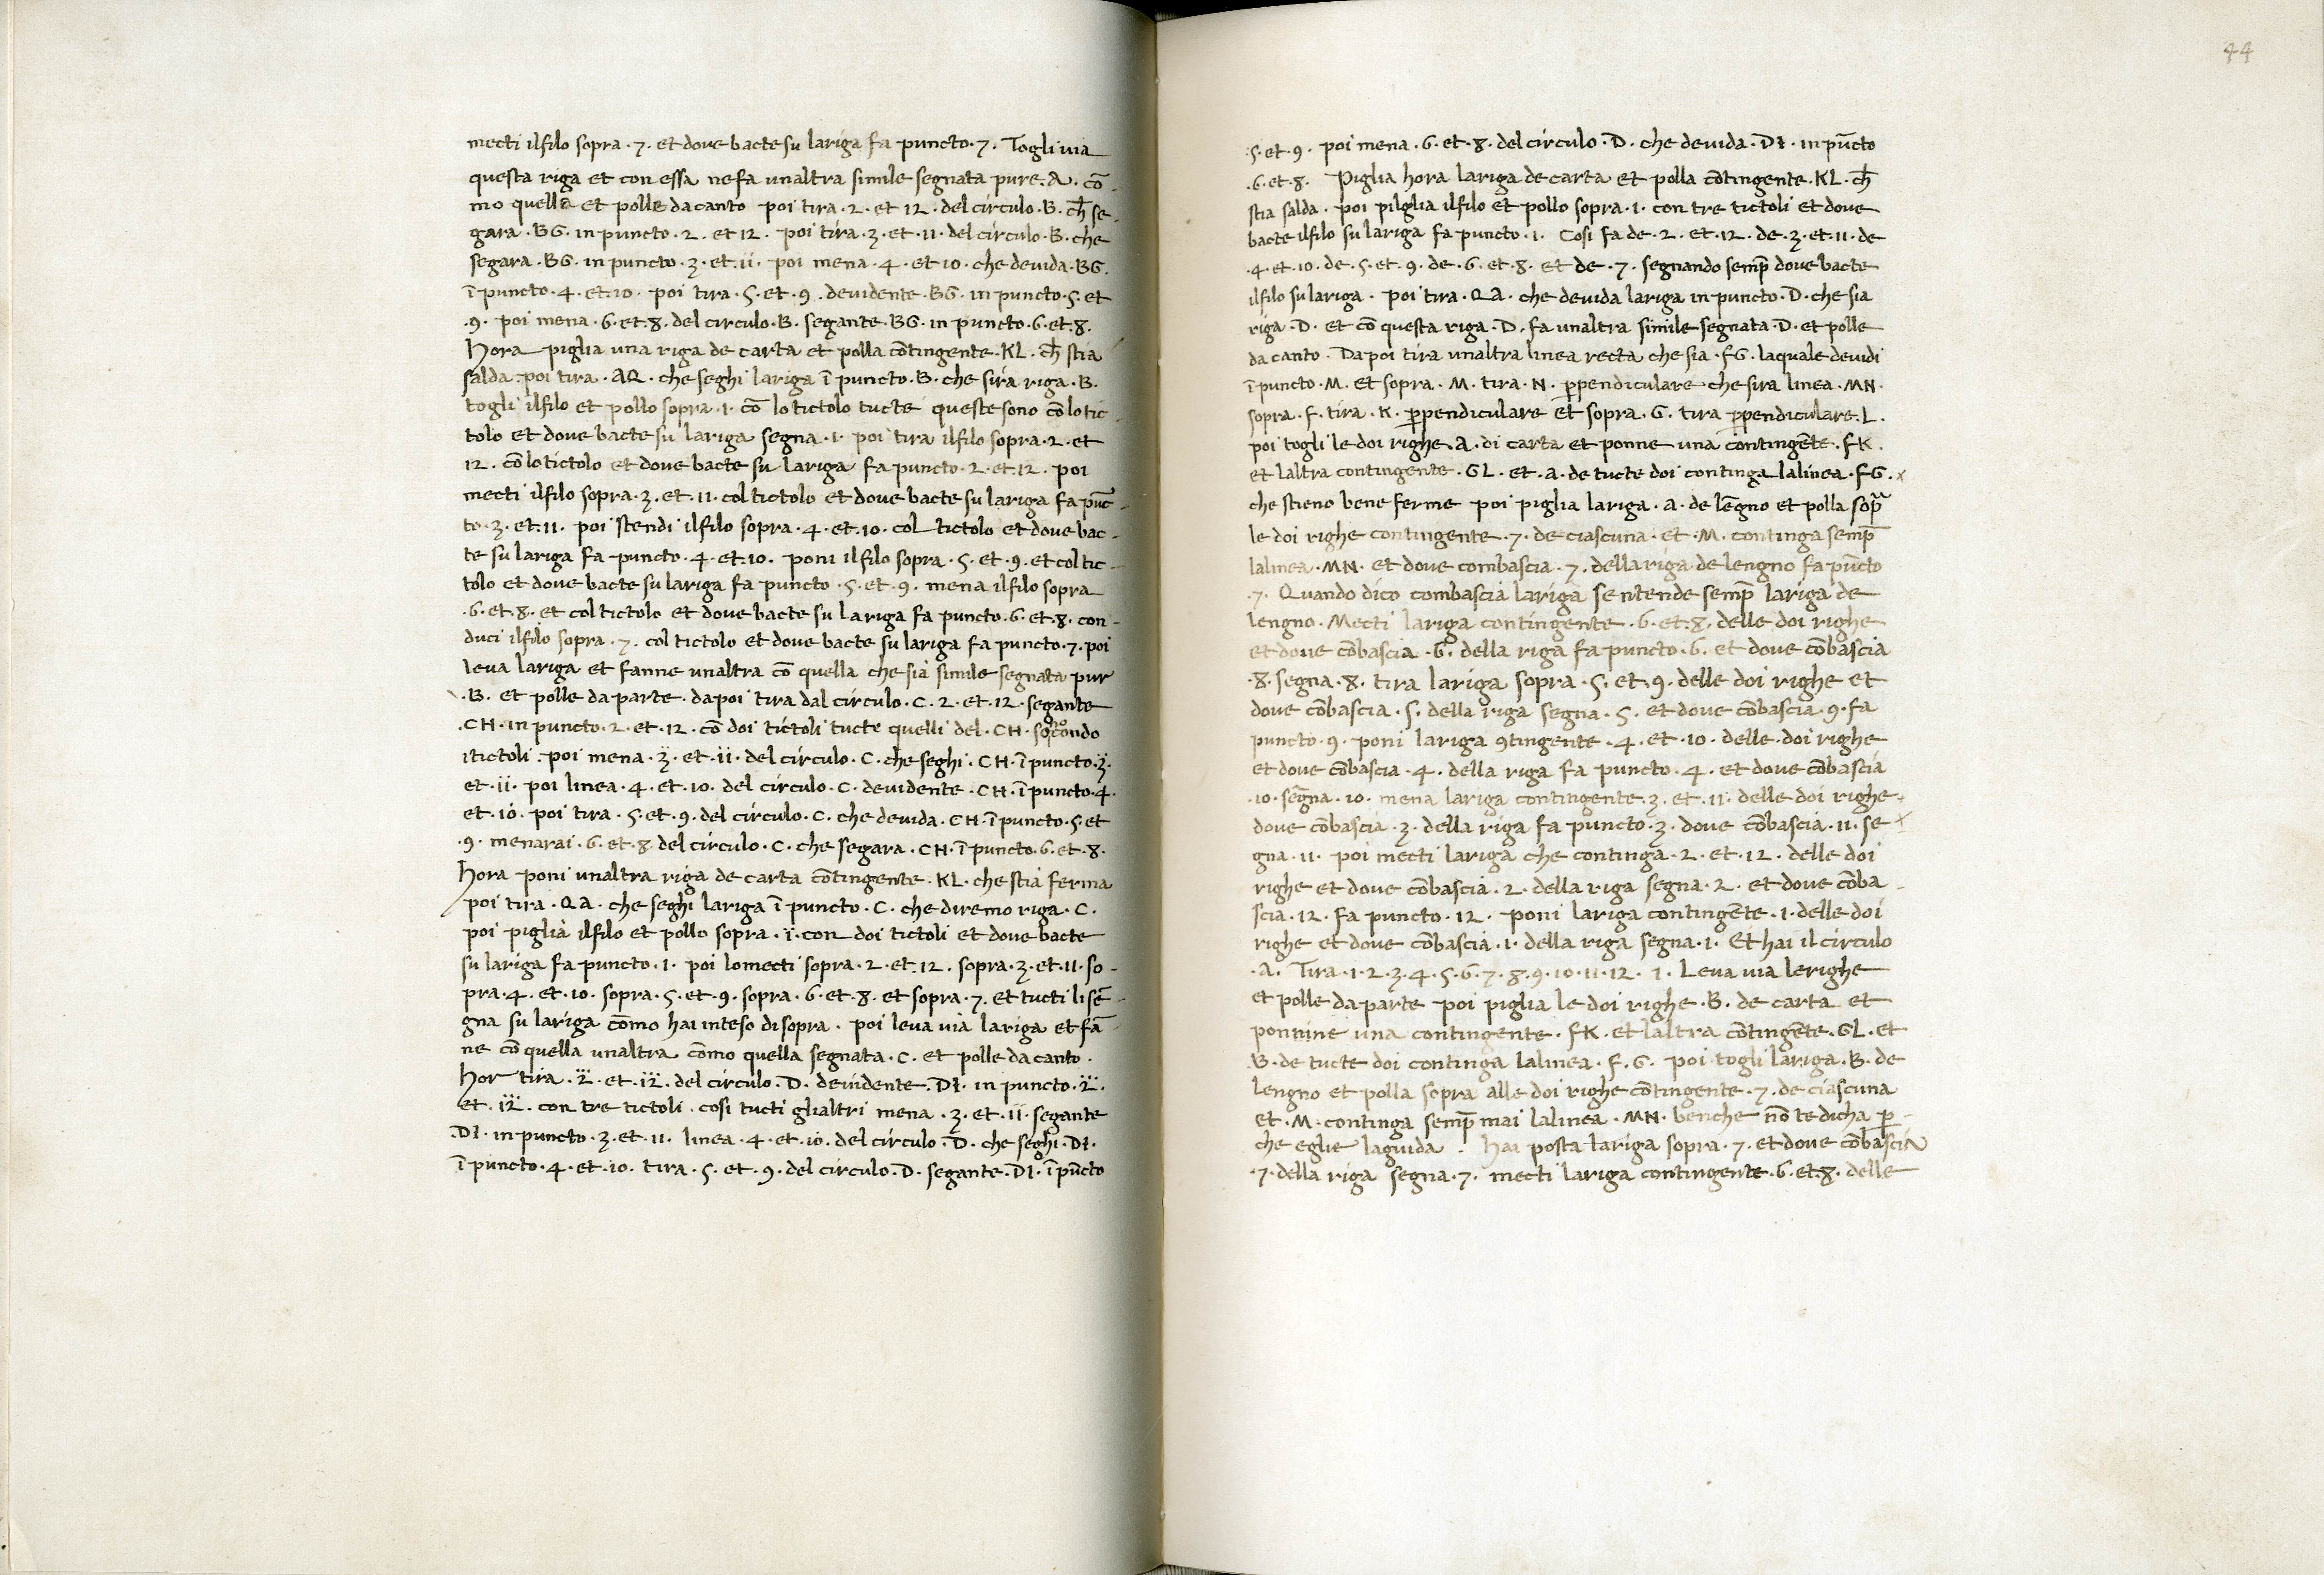 mecti ilfilo sopra .7. et doue bacte su lariga fa puncto .7. Togli uia
questa riga et con essa nefa unaltra simile segnata pure .A. cō-
mo quella et polle dacanto poi tira .2. et 12. del circulo .B. ch̄ se-
gara .BG. in puncto .2. et 12. poi tira .3. et .11. del circulo .B. che
segara .BG. in puncto .3. et .11. poi mena .4. et 10. che deuida .BG.
ī puncto .4. et .10. poi tira .5. et .9. deuidente .BG. in puncto .5. et
.9. poi mena .6. et .8. del circulo .B. segante .BG. in puncto .6. et .8.
Hora piglia una riga de carta et polla cōtingente .KL. ch̄ stia
salda. poi tira .AQ. che seghi lariga ī puncto .B. che sira riga .B.
togli ilfilo et pollo sopra .1. cō lo tictolo tucte queste sono cō lo tic
tolo et doue bacte su lariga segna .1. poi tira ilfilo sopra .2. et
12. cō lo tictolo et doue bacte su lariga fa puncto .2. et .12. poi
mecti ilfilo sopra .3. et .11. col tictolo et doue bacte su lariga fa pūc-
to .3. et .11. poi stendi ilfilo sopra .4. et .10. col tictolo et doue bac-
te su lariga fa puncto .4. et .10. poni ilfilo sopra .5. et .9. et col tic-
tolo et doue bacte su lariga fa puncto .5. et .9. mena ilfilo sopra
.6. et .8. et col tictolo et doue bacte su lariga fa puncto .6. et .8. con-
duci ilfilo sopra .7. col tictolo et doue bacte su lariga fa puncto .7. poi
leua lariga et fanne unaltra cō quella che sia simile segnata pur
.B. et polle da parte. dapoi tira dal circulo .C. 2. et .12. segante
.CH. in puncto .2. et .12. cō doi tictoli tucte quelli del .CH.
itictoli. poi mena .3̈. et .11. del circulo .C. che seghi .CH. ī puncto .3̈.
et .11. poi linea .4. et .10. del circulo .C. deuidente .CH. ī puncto .4.
et .10. poi tira .5. et .9. del circulo .C. che deuida .CH. ī puncto .5. et
.9. menarai .6. et .8. del circulo .C. che segara .CH. ī puncto .6. et .8.
Hora poni unaltra riga de carta cōtingente .KL. che stia ferma
poi tira .QA. che seghi lariga ī puncto .C. che diremo riga .C.
poi piglia ilfilo et pollo sopra .ï. con doi tictoli et doue bacte
su lariga fa puncto .1. poi lo mecti sopra .2. et .12. sopra .3. et .11. so-
pra .4. et .10. sopra .5. et .9. sopra .6. et .8. et sopra .7. et tucti li sē-
gna su lariga cōmo hai inteso di sopra. poi leua uia lariga et fā-
ne cō quella unaltra cōmo quella segnata .C. et polle da canto.
Hor tira .2. et .12. del circulo .D. deuidente .DI. in puncto .2.
et .12. con tre tictoli. cosi tucti glialtri mena .3. et .11. segante
.DI. in puncto .3. et .11. linea .4. et .10. del circulo .D. che seghi .DI.
ī puncto .4. et .10. tira .5. et .9. del circulo .D. segante .DI. ī pūcto
44
.5. et .9. poi mena .6. et .8. del circulo .D. che deuida .DI. in pūcto
.6. et .8. Piglia hora lariga de carta et polla cōtingente .KL. ch̄
stia salda. poi pilglia ilfilo et pollo sopra .1. con tre tictoli et doue
bacte ilfilo su lariga fa puncto .1. Cosi fa de .2. et .12. de .3. et .11. de
.4. et .10. de .5. et .9. de .6. et .8. et de .7. segnando semp̄ doue bacte
ilfilo su lariga. poi tira .QA. che deuida lariga in puncto .D. che sia
riga .D. et cō questa riga .D. fa unaltra simile segnata .D. et polle
da canto. Dapoi tira unaltra linea recta che sia .FG. laquale deuidi
ī puncto .M. et sopra .M. tira .N. ꝑpendiculare che sira linea .MN.
sopra .F. tira .K. ꝑpendiculare et sopra .G. tira ꝑpendiculare .L.
poi togli le doi righe .A. di carta et ponne una contingēte .FK.
et laltra contingente .GL. et .a. de tucte doi continga lalinea .FG.
che stieno bene ferme poi piglia lariga .A. de lēgno et polla sopᵃ
le doi righe contingente .7. de ciascuna et .M. continga semp̄
lalinea .MN. et doue combascia .7. della riga de lengno fa pūcto
.7. Quando dico combascia lariga sentende semp̄ lariga de
lengno. Mecti lariga contingente .6. et .8. delle doi righe
et doue cōbascia .6. della riga fa puncto .6. et doue cōbascia
.8. segna .8. tira lariga sopra .5. et .9. delle doi righe et
doue cōbascia .5. della riga segna .5. et doue cōbascia .9. fa
puncto .9. poni lariga ꝯtingente .4. et .10. delle doi righe
et doue cōbascia .4. della riga fa puncto .4. et doue cōbascia
.10. segna .10. mena lariga contingente .3. et .11. delle doi righe
doue cōbascia .3. della riga fa puncto .3. doue cōbascia .11. se
gna .11. poi mecti lariga che continga .2. et .12. delle doi
righe et doue cōbascia .2. della riga segna .2. et doue cōba-
scia .12. fa puncto .12. poni lariga contingēte .1. delle doi
righe et doue cōbascia .1. della riga segna .1. Et hai il circulo
.A. Tira .1.2.3.4.5.6.7.8.9.10.11.12. 1. Leua uia lerighe
et polle daparte poi piglia le doi righe .B. de carta et
ponnine una contingente .FK. et laltra cōtingēte .GL. et
.B. de tucte doi continga lalinea .F.G. poi togli lariga .B. de
lengno et polla sopra alle doi righe cōtingente .7. de ciascuna
et .M. continga semp̄ mai lalinea .MN. benche nō te dicha ꝑ-
che eglie laguida. Hai posta lariga sopra .7. et doue cōbascia
.7. della riga segna .7. mecti lariga contingente .6. et .8. delle